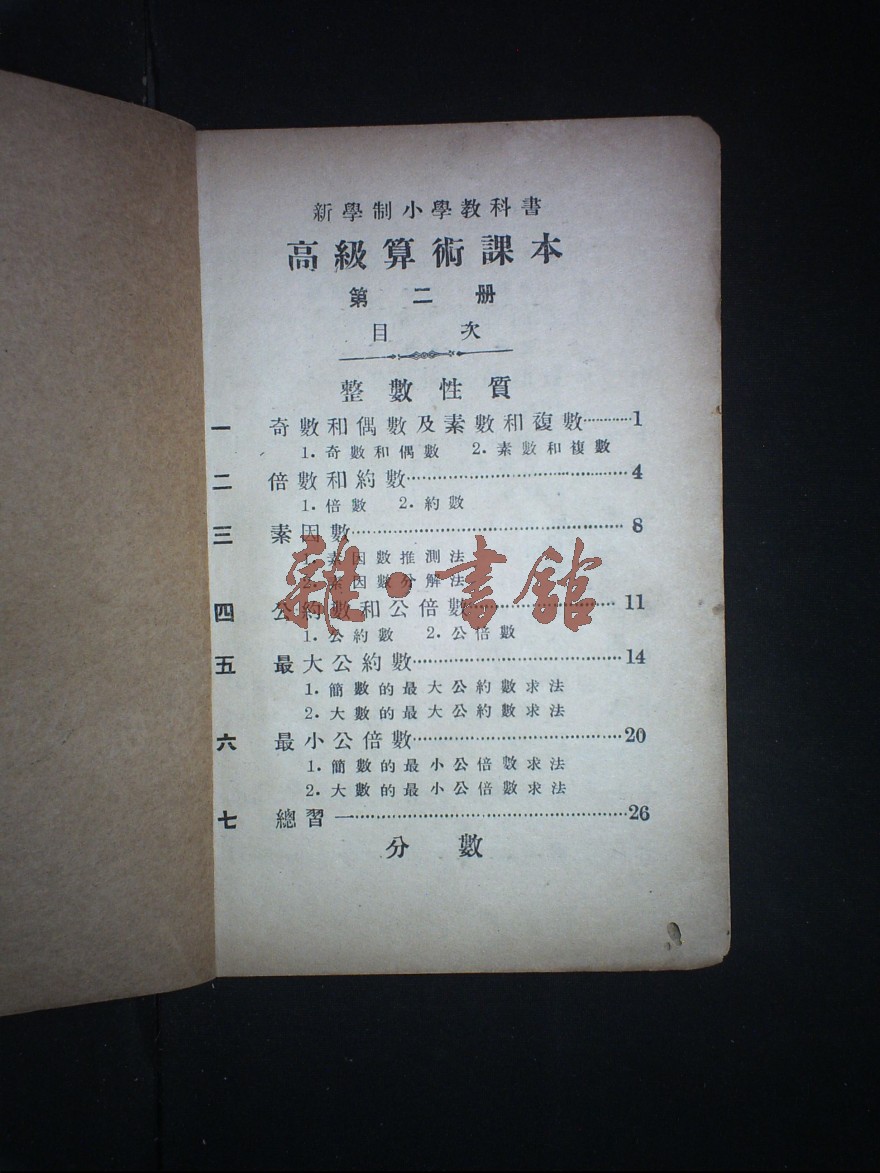 新學制小學教科書
高級算術課本
第二册
目次
整數性質
一 奇數和偶數及素數和複數…………1
1.奇數和偶數 2.素數和複數
二 倍數和約數…………4
1.倍數 2.約數
三 素因數…………8
1.素因數推測法
2.素因數分解法
四 公約數和公倍數…………11
1.公約數 2.公倍數
五 最大公約數…………14
1.簡數的最大公約數求法
2.大數的最大公約數求法
六 最小公倍數…………20
1.簡數的最小公倍數求法
2.大數的最小公倍數求法
七 總習一…………26
分數
雜·書館